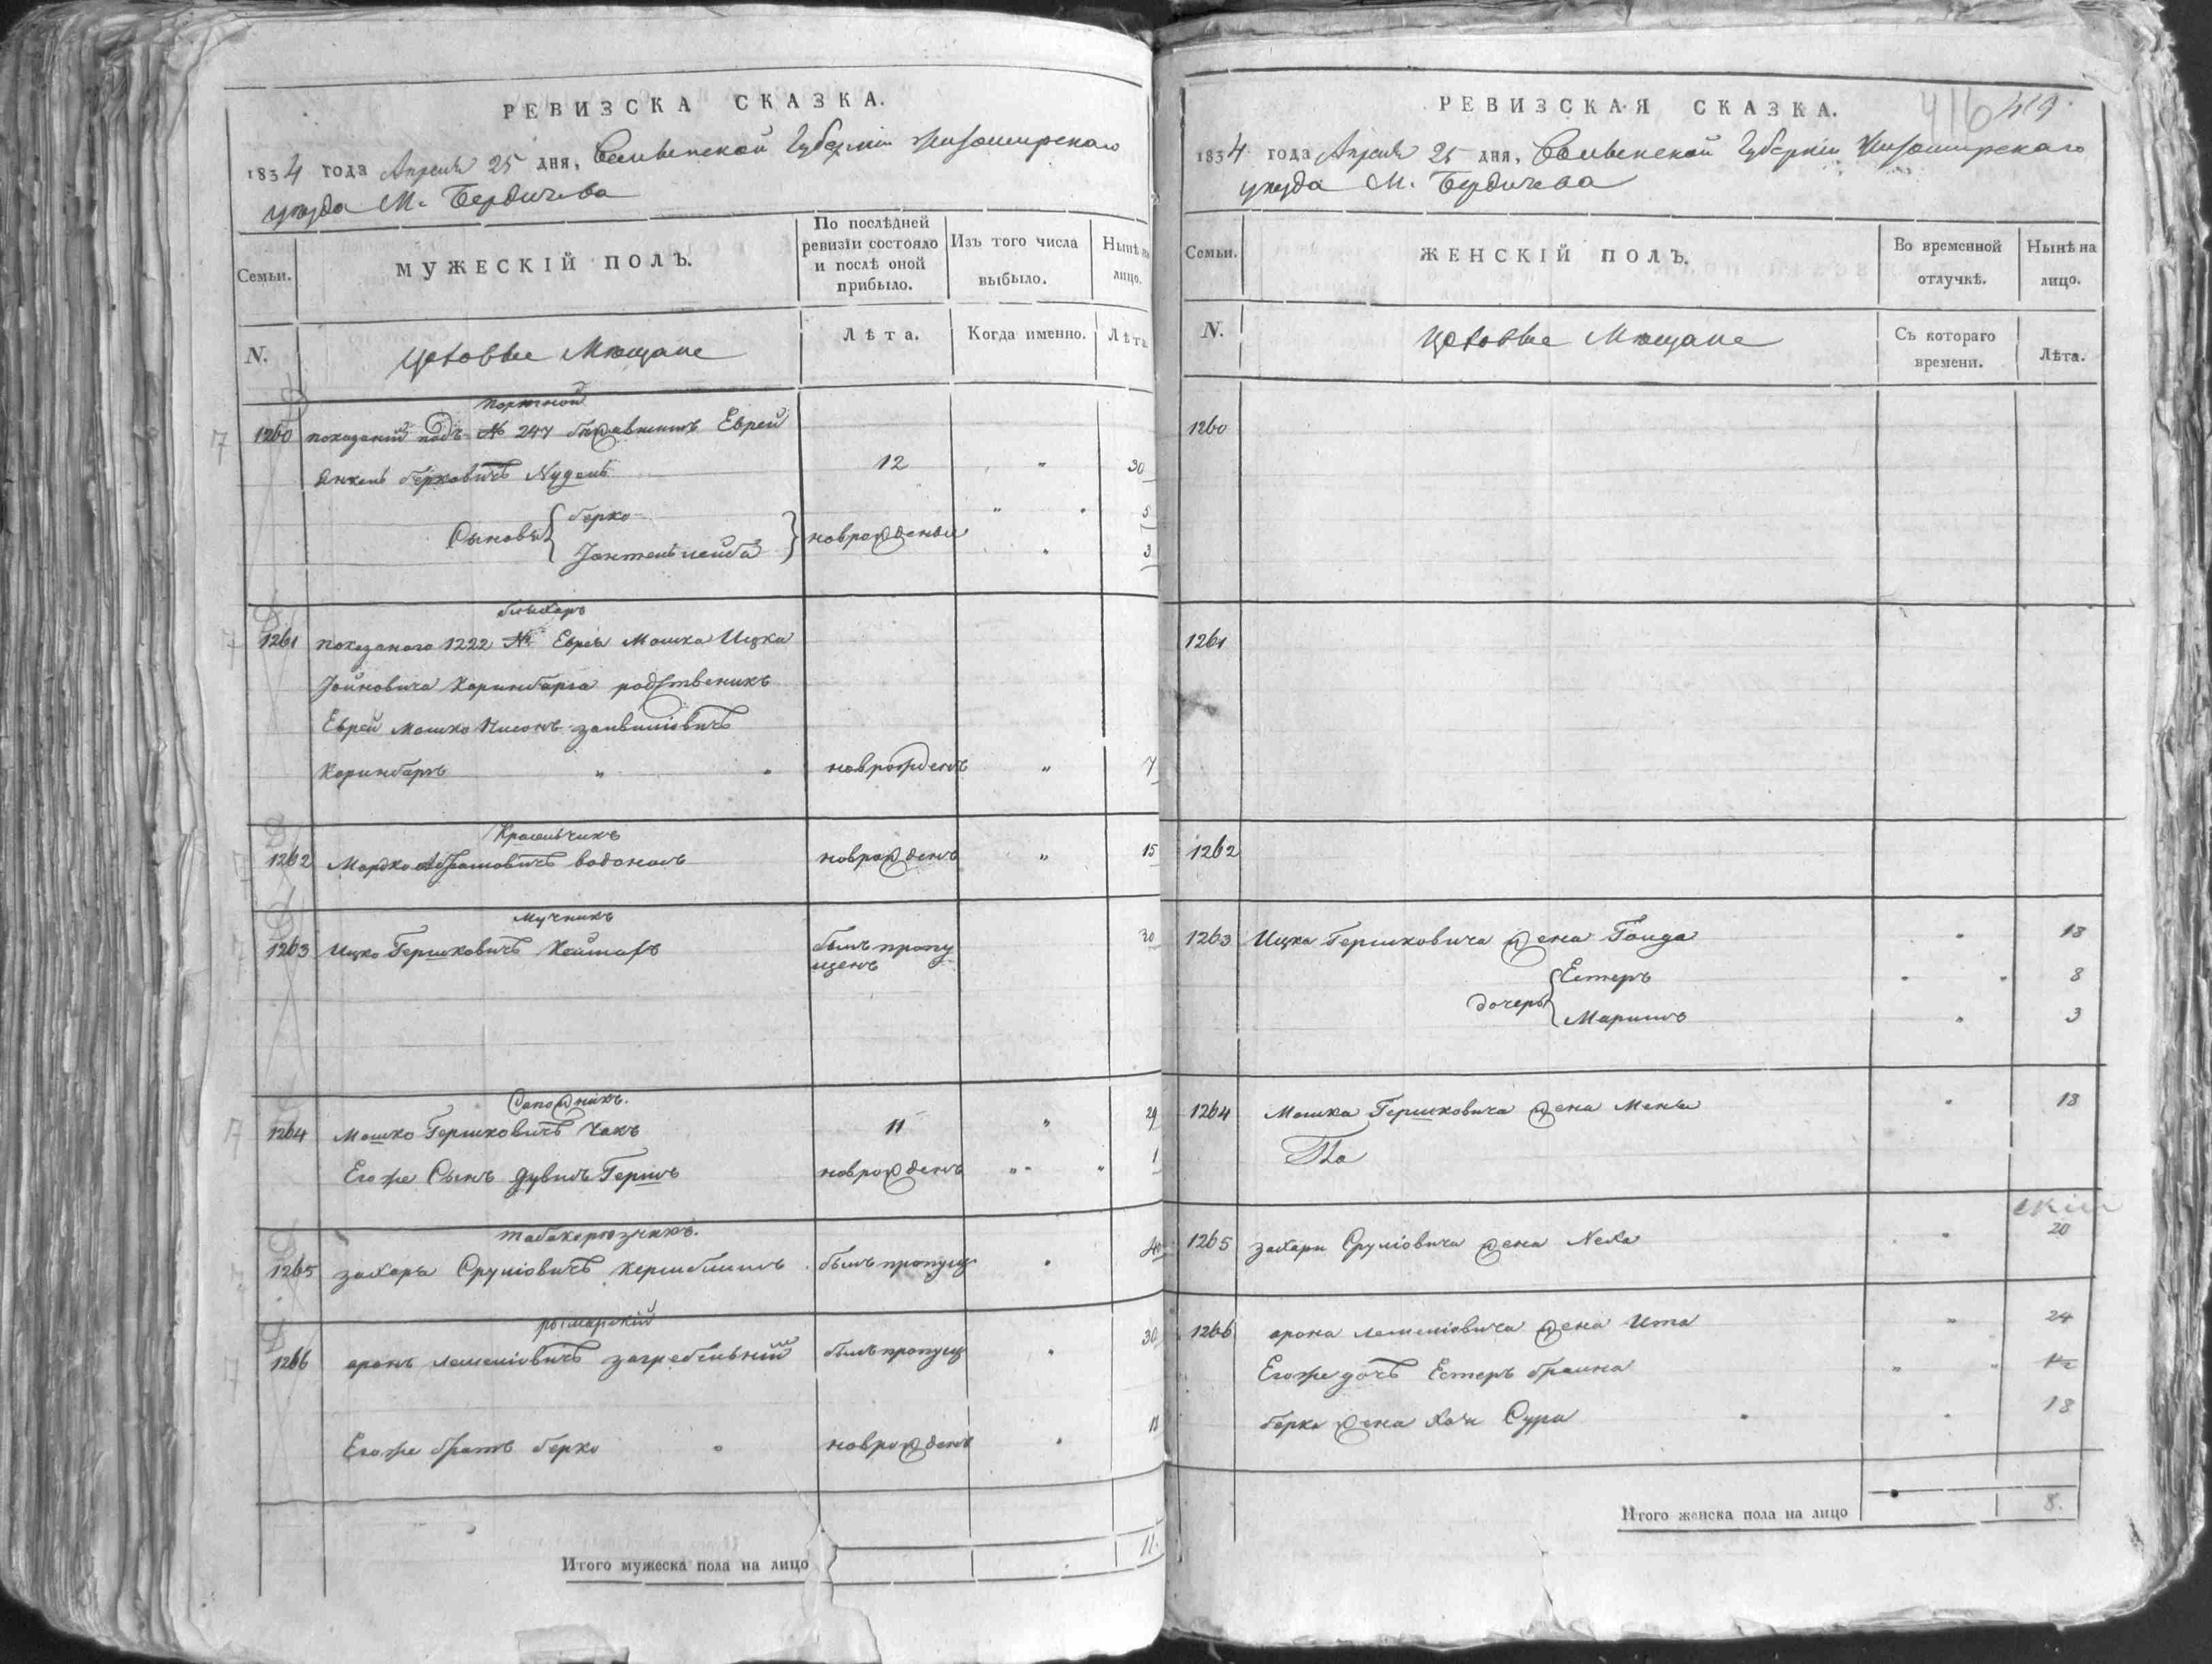 РЕВИЗСКА СКАЗКА.
1834 года Апреля 25 дня, Волынской Губерніи Житомирскаго
уѣзда М. Бердичева
Семьи.
МУЖЕСКІЙ ПОЛЪ.
По послѣдней ревизіи состояло и послѣ оной прибыло.
Изъ того числа выбыло.
Нынѣ на лицо.
N.
Цеховые Мещане
Лѣта.
Когда именно.
Лѣта
портной
1260 показаній подъ № 247 Еврей
Янкель Берковичъ Nудель 12 " 30
Сыновья Берко " 5
новрождены
Лейба " 3
1261 показаного 1222 № Еврея Мошка Ицка
Іойновича Коринбарга родственикъ
Еврей Мошко Нисонъ
Коринбаргъ " новрожденъ " 7
Красильчикъ
1262 Мордко Абрамовичъ новрожденъ " 15
Мучникъ
1263 Ицко Гершковичъ былъ пропу 30
щенъ
Сапожникъ.
1264 Мошко Гершковичъ Чакъ 11 " 29
Его же Сынъ Дувидъ Гершъ новрожденъ " 1
1265 Захаръ Сруліовичъ былъ пропущ " 40
рымарскій
1266 аронъ былъ пропущ " 30
Его же братъ Берко " новрожденъ " 18
Итого мужеска пола на лицо 11.
РЕВИЗСКАЯ СКАЗКА.
416 419
1834 года Апреля 25 дня, Волынской Губерніи Житомирскаго
уѣзда М. Бердичева
Семьи.
ЖЕНСКІЙ ПОЛЪ.
Во временной отлучкѣ.
Нынѣ на лицо.
N.
Цеховые Мещане
Съ котораго времени.
Лѣта.
1260
1261
1262
1263 Ицка Гершковича жена Гоида " 18
дочеры Естеръ " 8
" 3
1264 Мошка Гершковича жена Менья " 18
1265 Захары Сруліовича жена Nеха " 20
1266 арона жена Ита " 24
Его же дочъ Естеръ Браина "
Берка жена Хая Сура " 18
Итого женска пола на лицо 8.